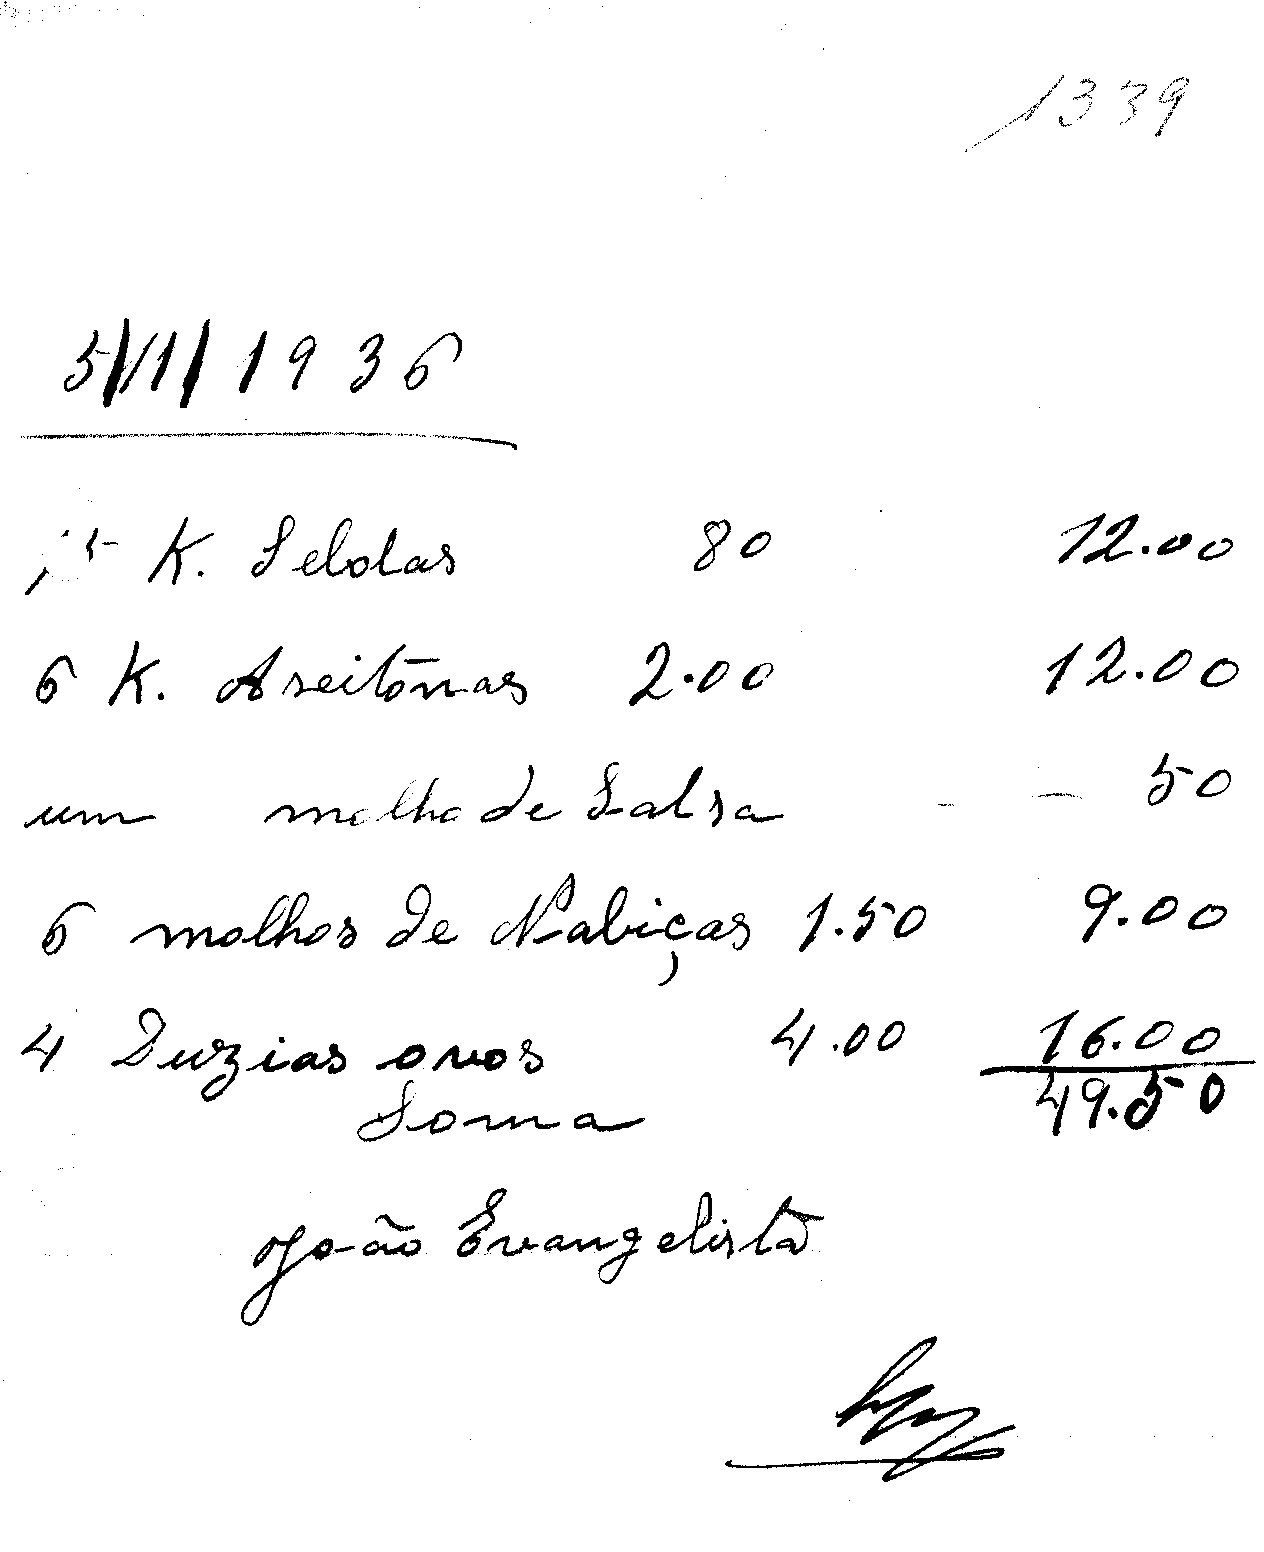 1339
5/1/1936
15 K. Selolas 80 12.00
6 K. Aseitonas 2.00 12.00
um molho de Salsa - - 50
6 molhos de Nabiças 1.50 9.00
4 Duzias ovos 4.00 16.00
Soma 49.50
João Evangelista